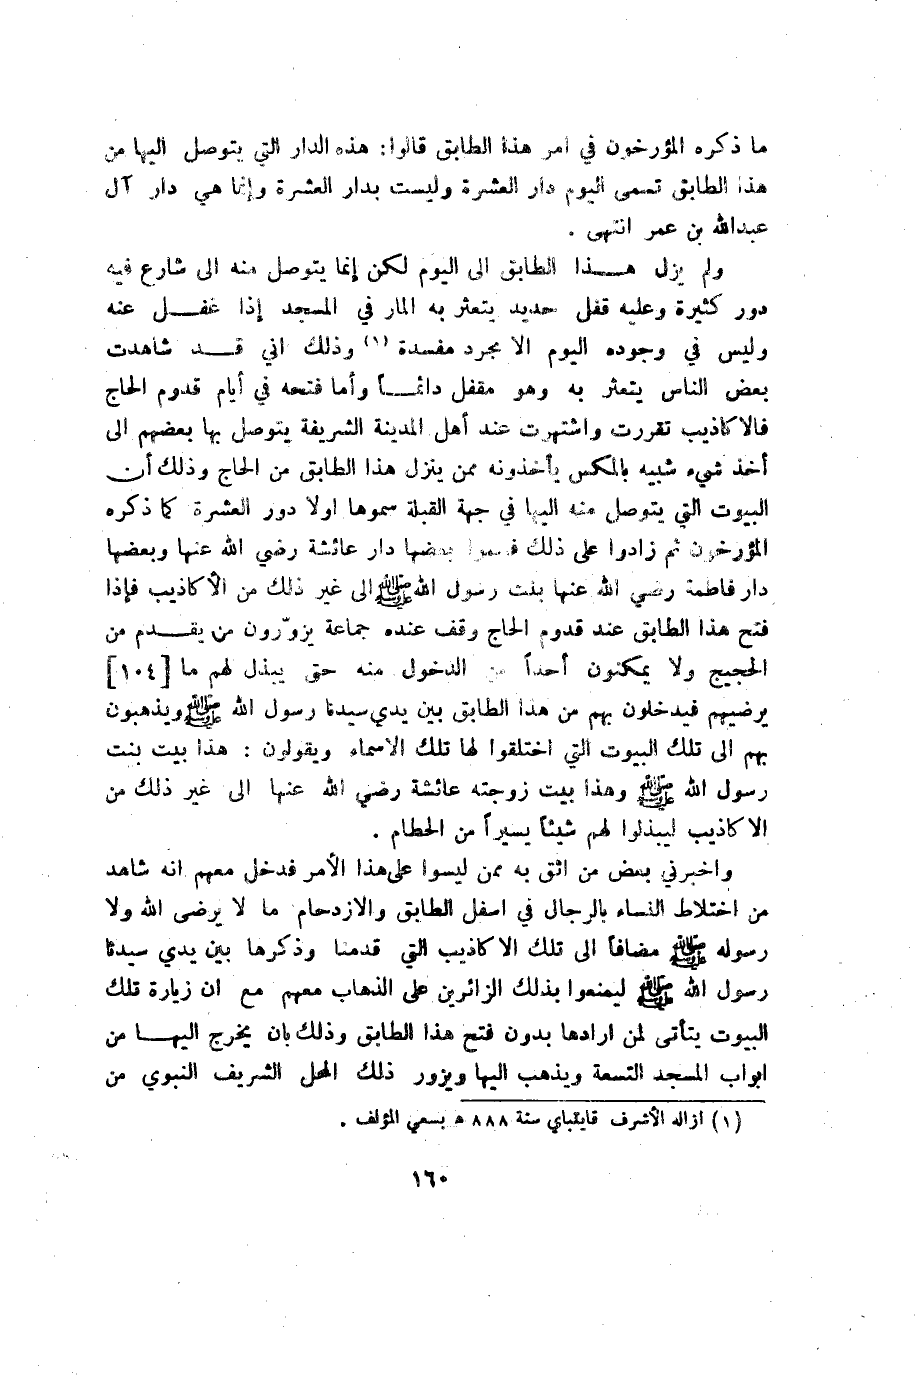 ما ذكره المؤرخون في امر هذا الطابق قالوا: هذه الدار التي يتوصل اليها من
هذا الطابق تسمى اليوم دار العشرة وليست بدار العشرة وإنما هي دار آل
عبدالله بن عمر انتهى .
ولم يزل هذا الطابق الى اليوم لكن إنما يتوصل منه الى شارع فيه
دور كثيرة وعليه قفل حديد يتعثر به المار في المسجد إذا غفل عنه
وليس في وجوده اليوم الا مجرد مفسدة (١) وذلك اني قد شاهدت
بعض الناس يتعثر به وهو مقفل دائماً وأما فتحه في أيام قدوم الحاج
فالاكاذيب تقررت واشتهرت عند أهل المدينة الشريفة يتوصل بها بعضهم الى
أخذ شيء شبيه بالمكس يأخذونه ممن ينزل هذا الطابق من الحاج وذلك أن
البيوت التي يتوصل منه اليها في جهة القبلة سموها اولا دور العشرة كما ذكره
المؤرخون ثم زادوا على ذلك فسموا بعضها دار عائشة رضي الله عنها وبعضها
دار فاطمة رضي الله عنها بنت رسول الله ﷺ الى غير ذلك من الأكاذيب فإذا
فتح هذا الطابق عند قدوم الحاج وقف عنده جماعة يزوّرون من يقدم من
الحجيج ولا يمكنون أحداً من الدخول منه حتى يبذل لهم ما [١٠٤]
يرضيهم فيدخلون بهم من هذا الطابق بين يدي سيدنا رسول الله ﷺ ويذهبون
بهم الى تلك البيوت التي اختلقوا لها تلك الاسماء ويقولون : هذا بيت بنت
رسول الله ﷺ وهذا بيت زوجته عائشة رضي الله عنها الى غير ذلك من
الاكاذيب ليبذلوا لهم شيئاً يسيراً من الحطام .
واخبرني بعض من اثق به ممن ليسوا على هذا الأمر فدخل معهم انه شاهد
من اختلاط النساء بالرجال في اسفل الطابق والازدحام ما لا يرضى الله ولا
رسوله ﷺ مضافاً الى تلك الاكاذيب التي قدمنا وذكرها بين يدي سيدنا
رسول الله ﷺ ليمنعوا بذلك الزائرين على الذهاب معهم مع ان زيارة تلك
البيوت يتأتى لمن ارادها بدون فتح هذا الطابق وذلك بان يخرج اليها من
ابواب المسجد التسعة ويذهب اليها ويزور ذلك المحل الشريف النبوي من
(١) ازاله الأشرف قايتباي سنة ٨٨٨ ه بسعي المؤلف .
١٦٠